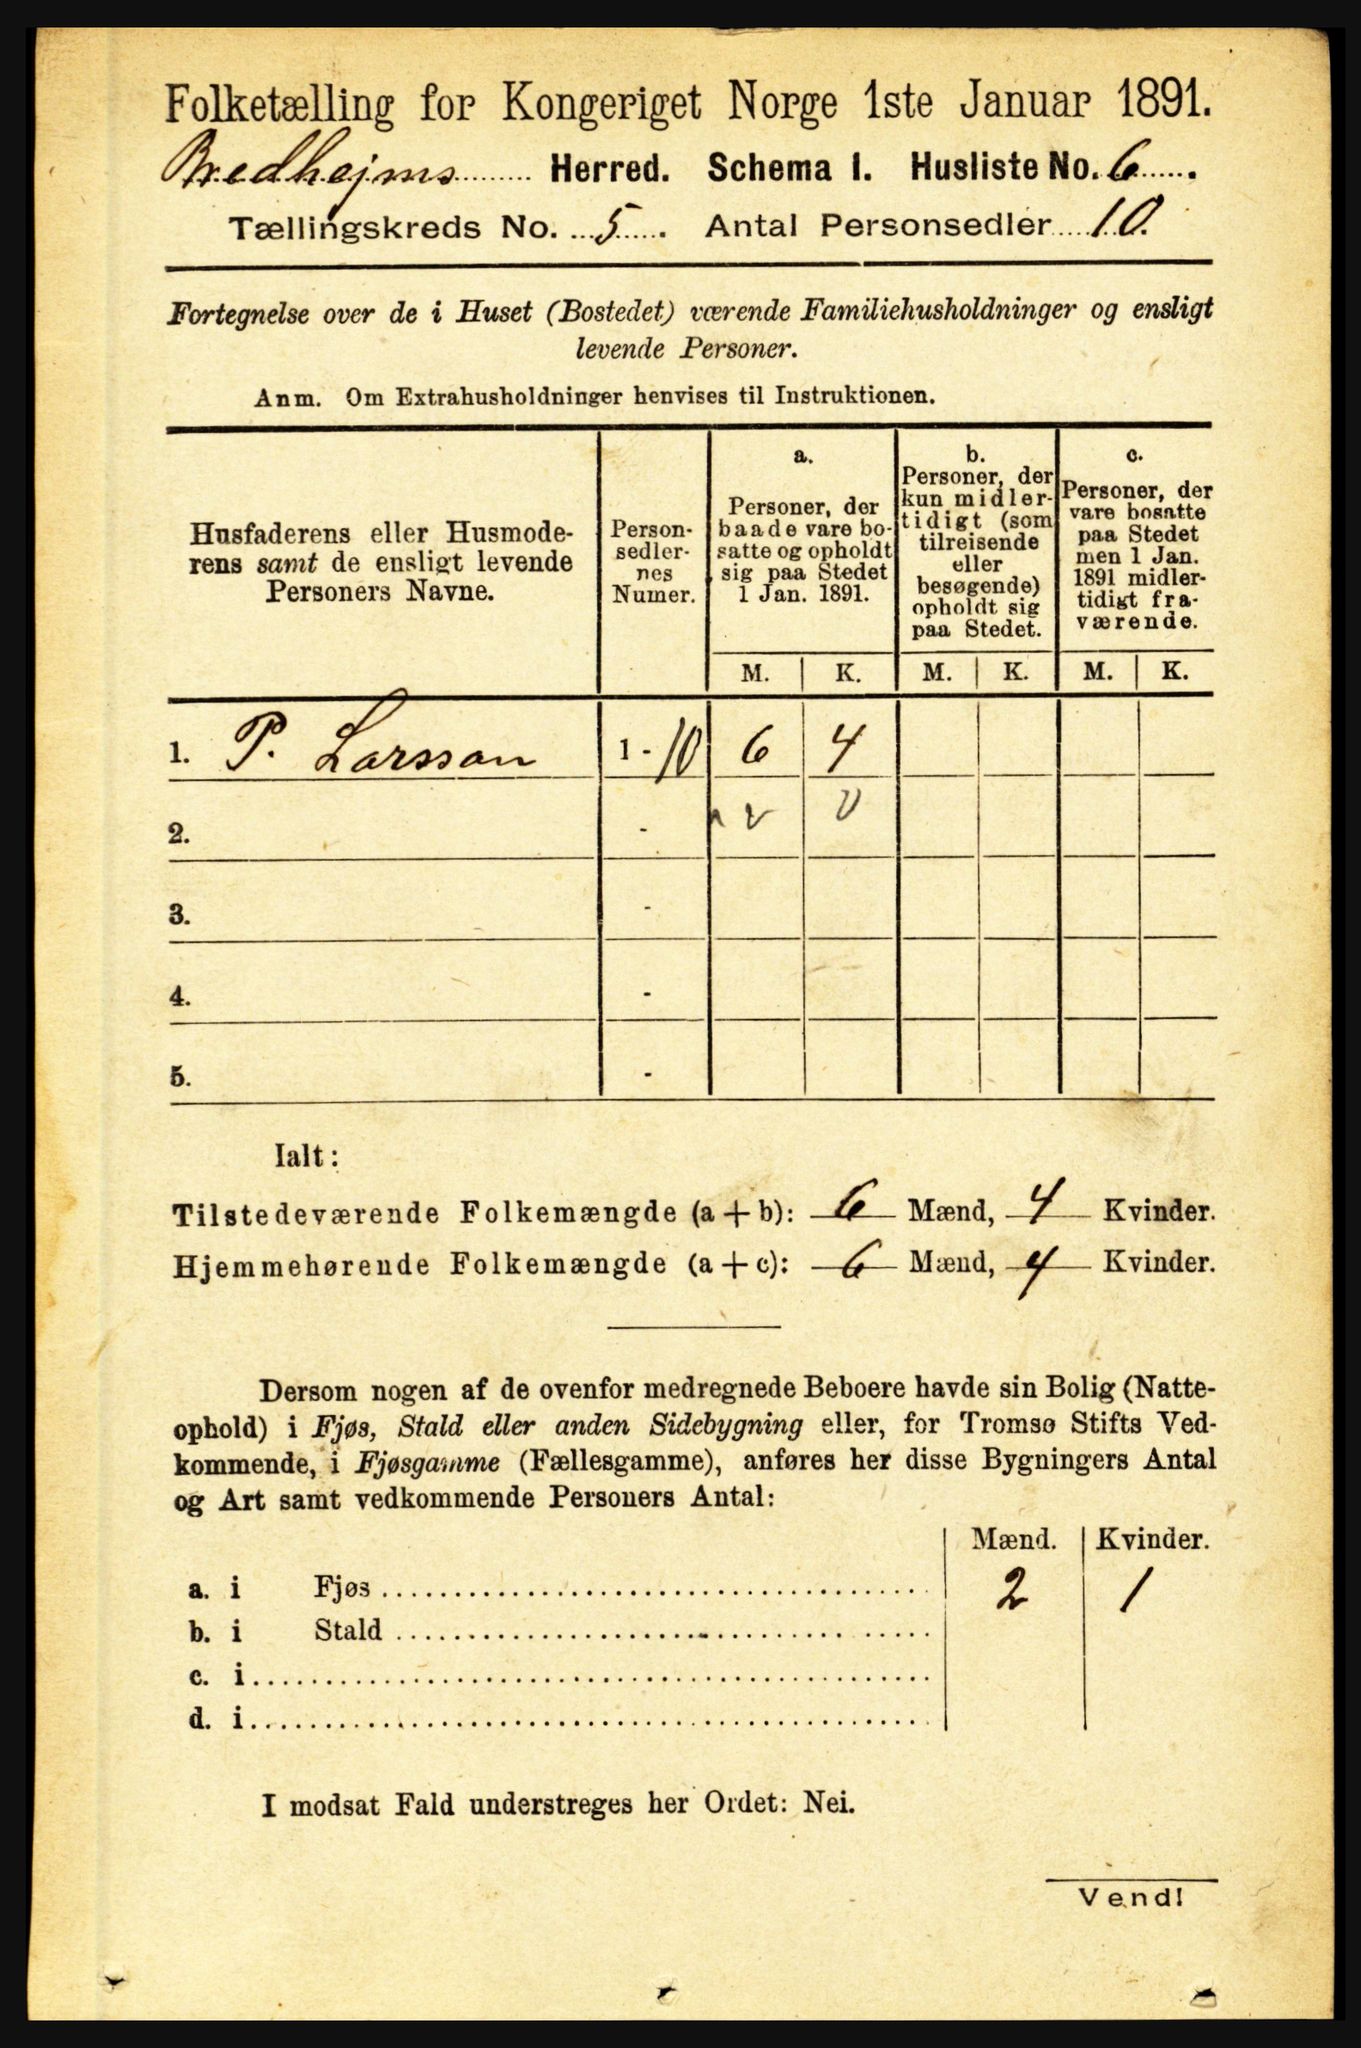 Folketælling for Kongeriget Norge 1ste Januar 1891.
Bredhejms Herred. Schema I. Husliste No. 6.
Tællingskreds No. 5. Antal Personsedler 10.
Fortegnelse over de i Huset (Bostedet) værende Familiehusholdninger og ensligt
levende Personer.
Anm. Om Extrahusholdninger henvises til Instruktionen.
Husfaderens eller Husmode-
rens samt de ensligt levende
Personers Navne.
Person-
sedler-
nes
Numer.
a.
Personer, der
baade vare bo-
satte og opholdt
sig paa Stedet
1 Jan. 1891.
b.
Personer, der
kun midler-
tidigt (som
tilreisende
eller
besøgende)
opholdt sig
paa Stedet.
c.
Personer, der
vare bosatte
paa Stedet
men 1 Jan.
1891 midler-
tidigt fra-
værende.
M. K. M. K. M. K.
1. P. Larsson 1 - 10 6 4
2. - v 0
3. -
4. -
5. -
Ialt:
Tilstedeværende Folkemængde (a + b): 6 Mænd, 4 Kvinder.
Hjemmehørende Folkemængde (a + c): 6 Mænd, 4 Kvinder.
Dersom nogen af de ovenfor medregnede Beboere havde sin Bolig (Natte-
ophold) i Fjøs, Stald eller anden Sidebygning eller, for Tromsø Stifts Ved-
kommende, i Fjøsgamme (Fællesgamme), anføres her disse Bygningers Antal
og Art samt vedkommende Personers Antal:
Mænd. Kvinder.
a. i Fjøs 2 1
b. i Stald
c. i
d. i
I modsat Fald understreges her Ordet: Nei.
Vend!